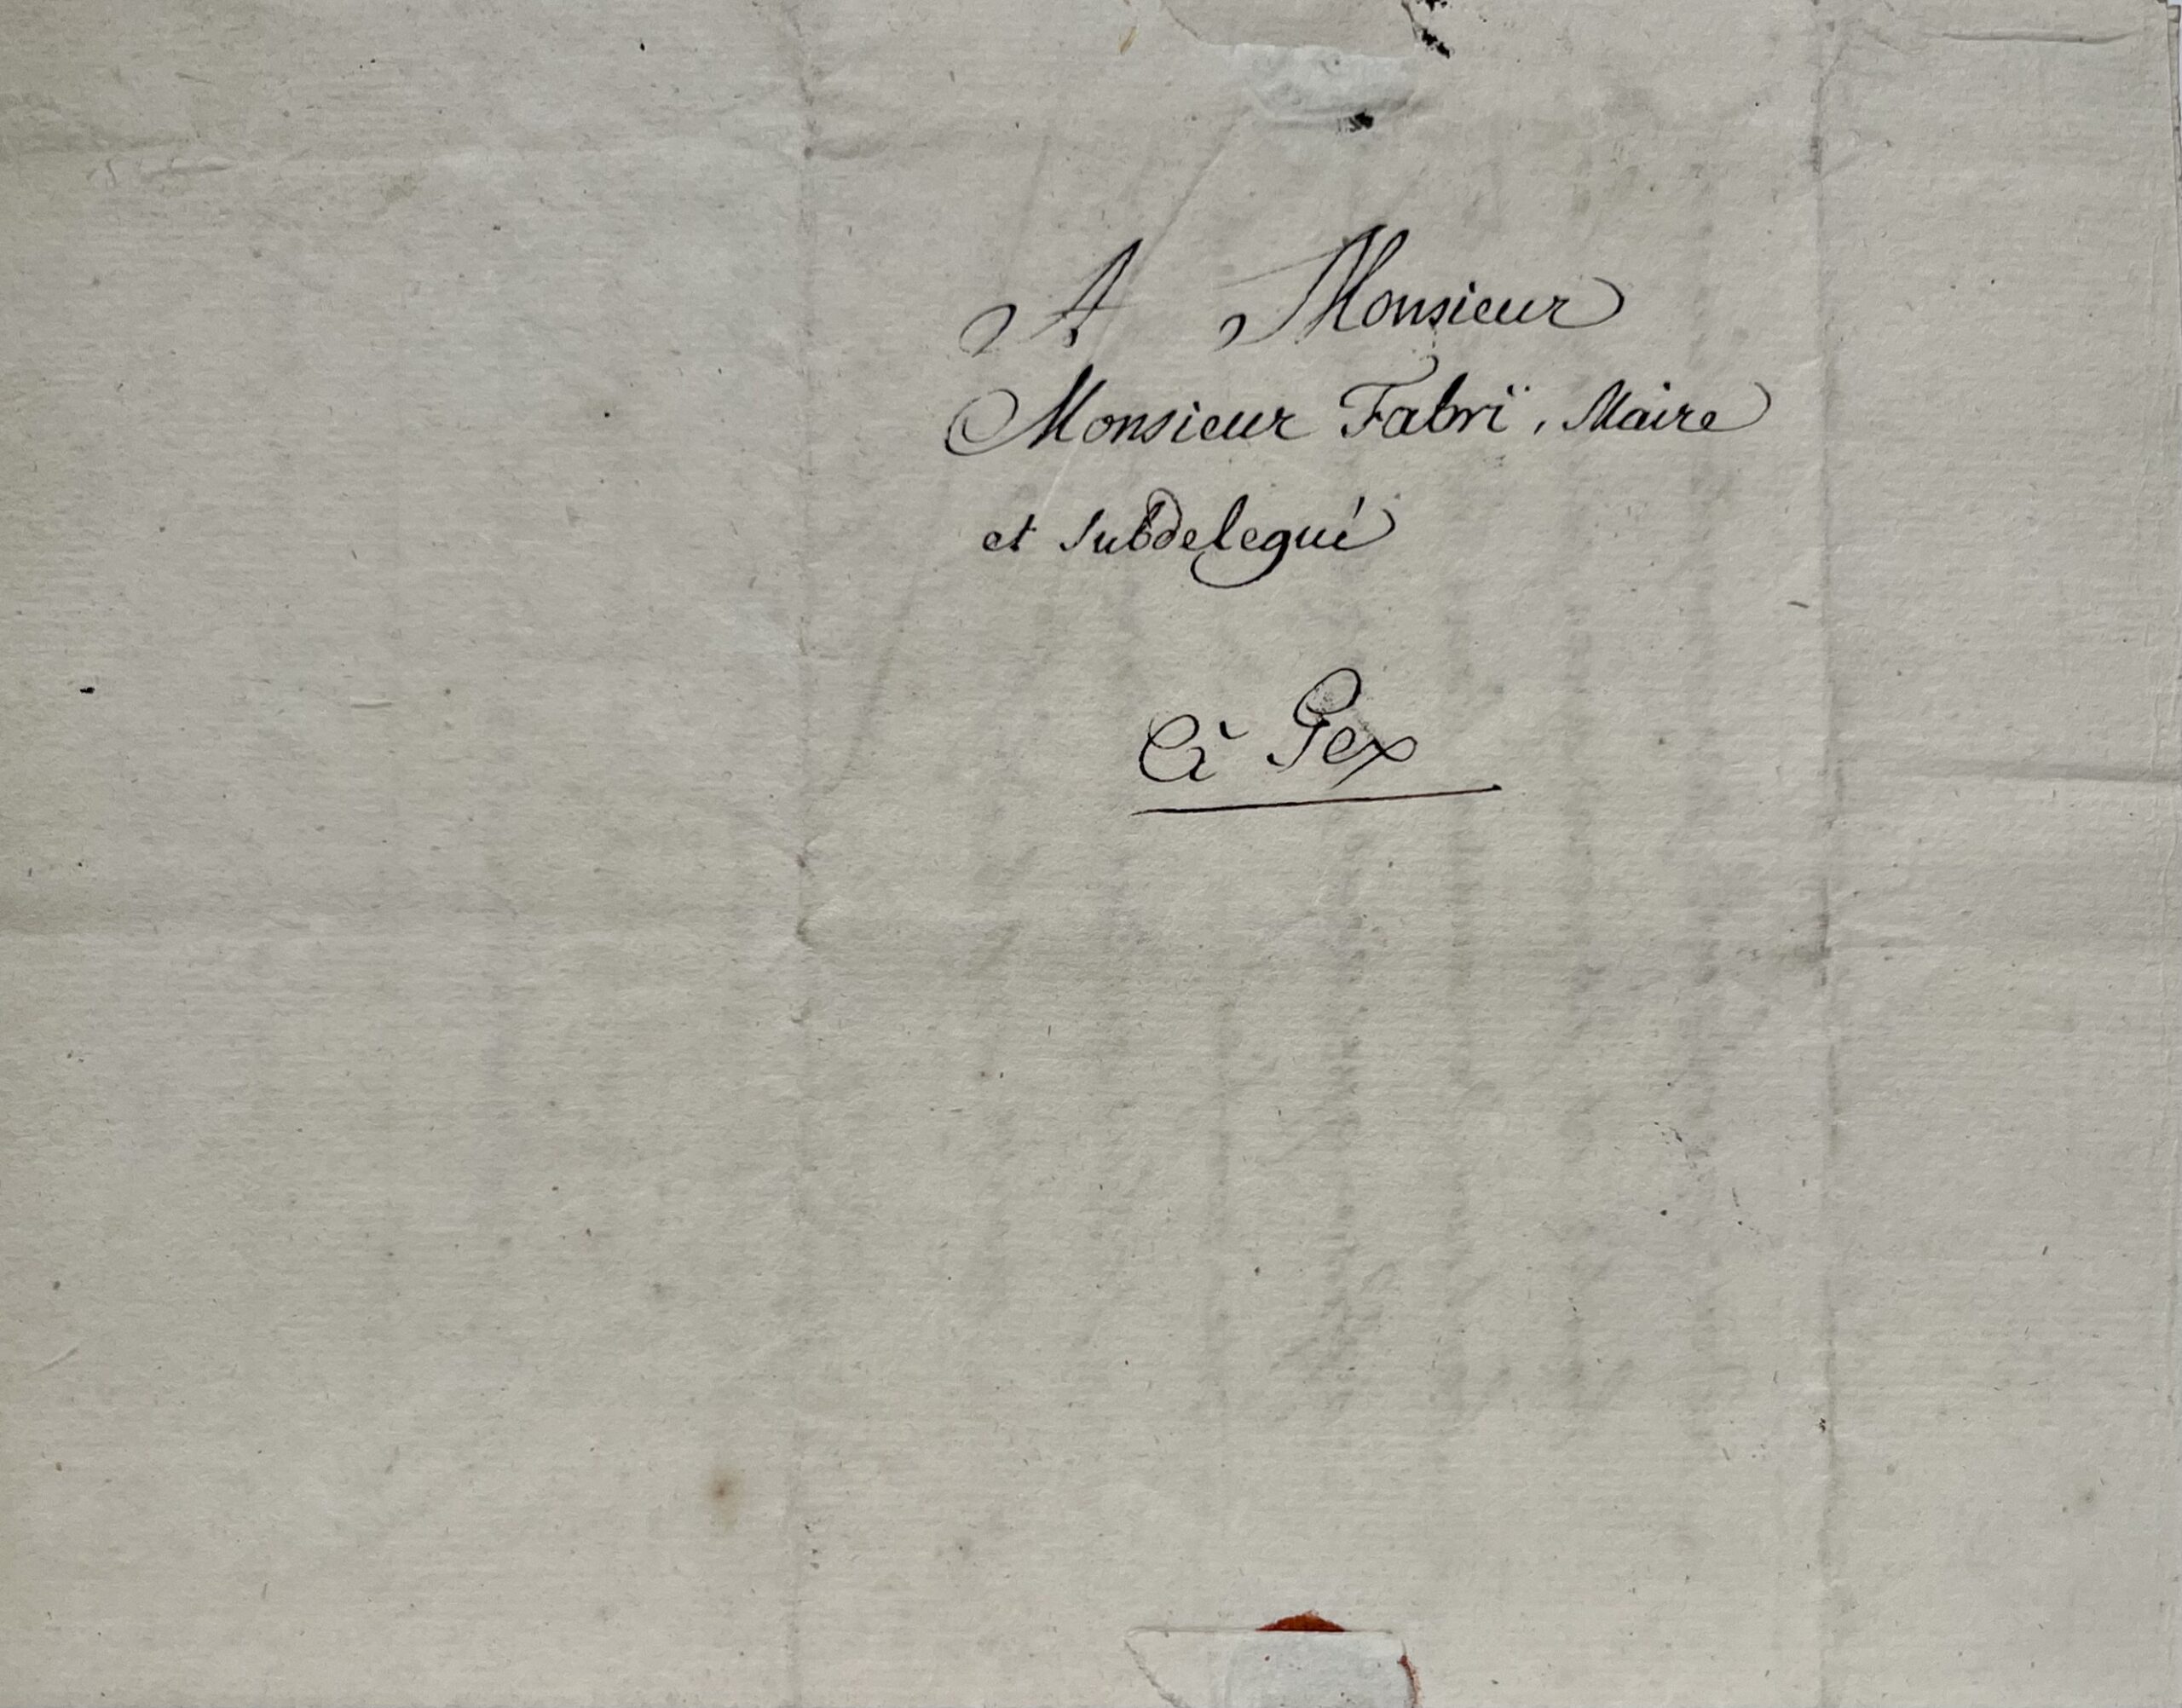 A Monsieur
Monsieur Fabri, Maire
et Subdelegué
à Gex